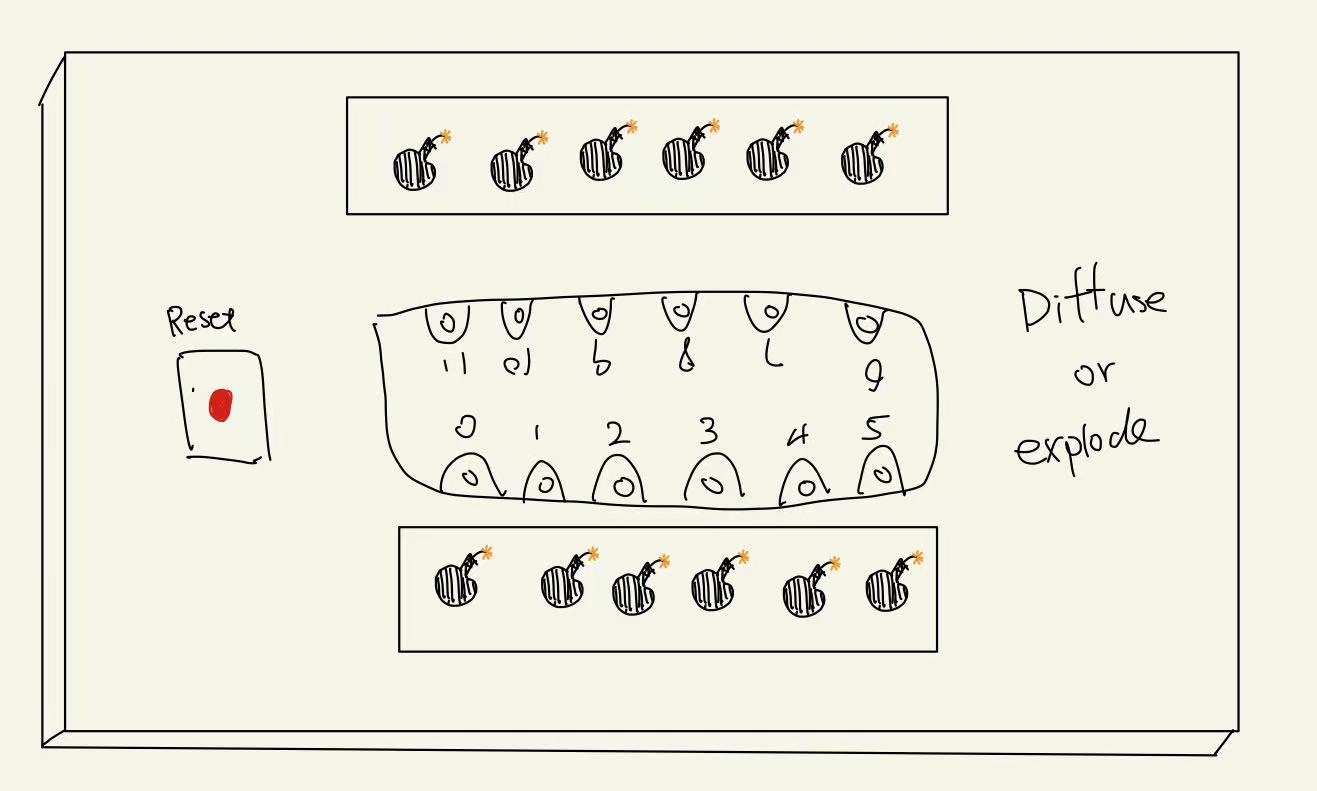 Reset
11 10 9 8 7 6
0 1 2 3 4 5
Diffuse
or
explode